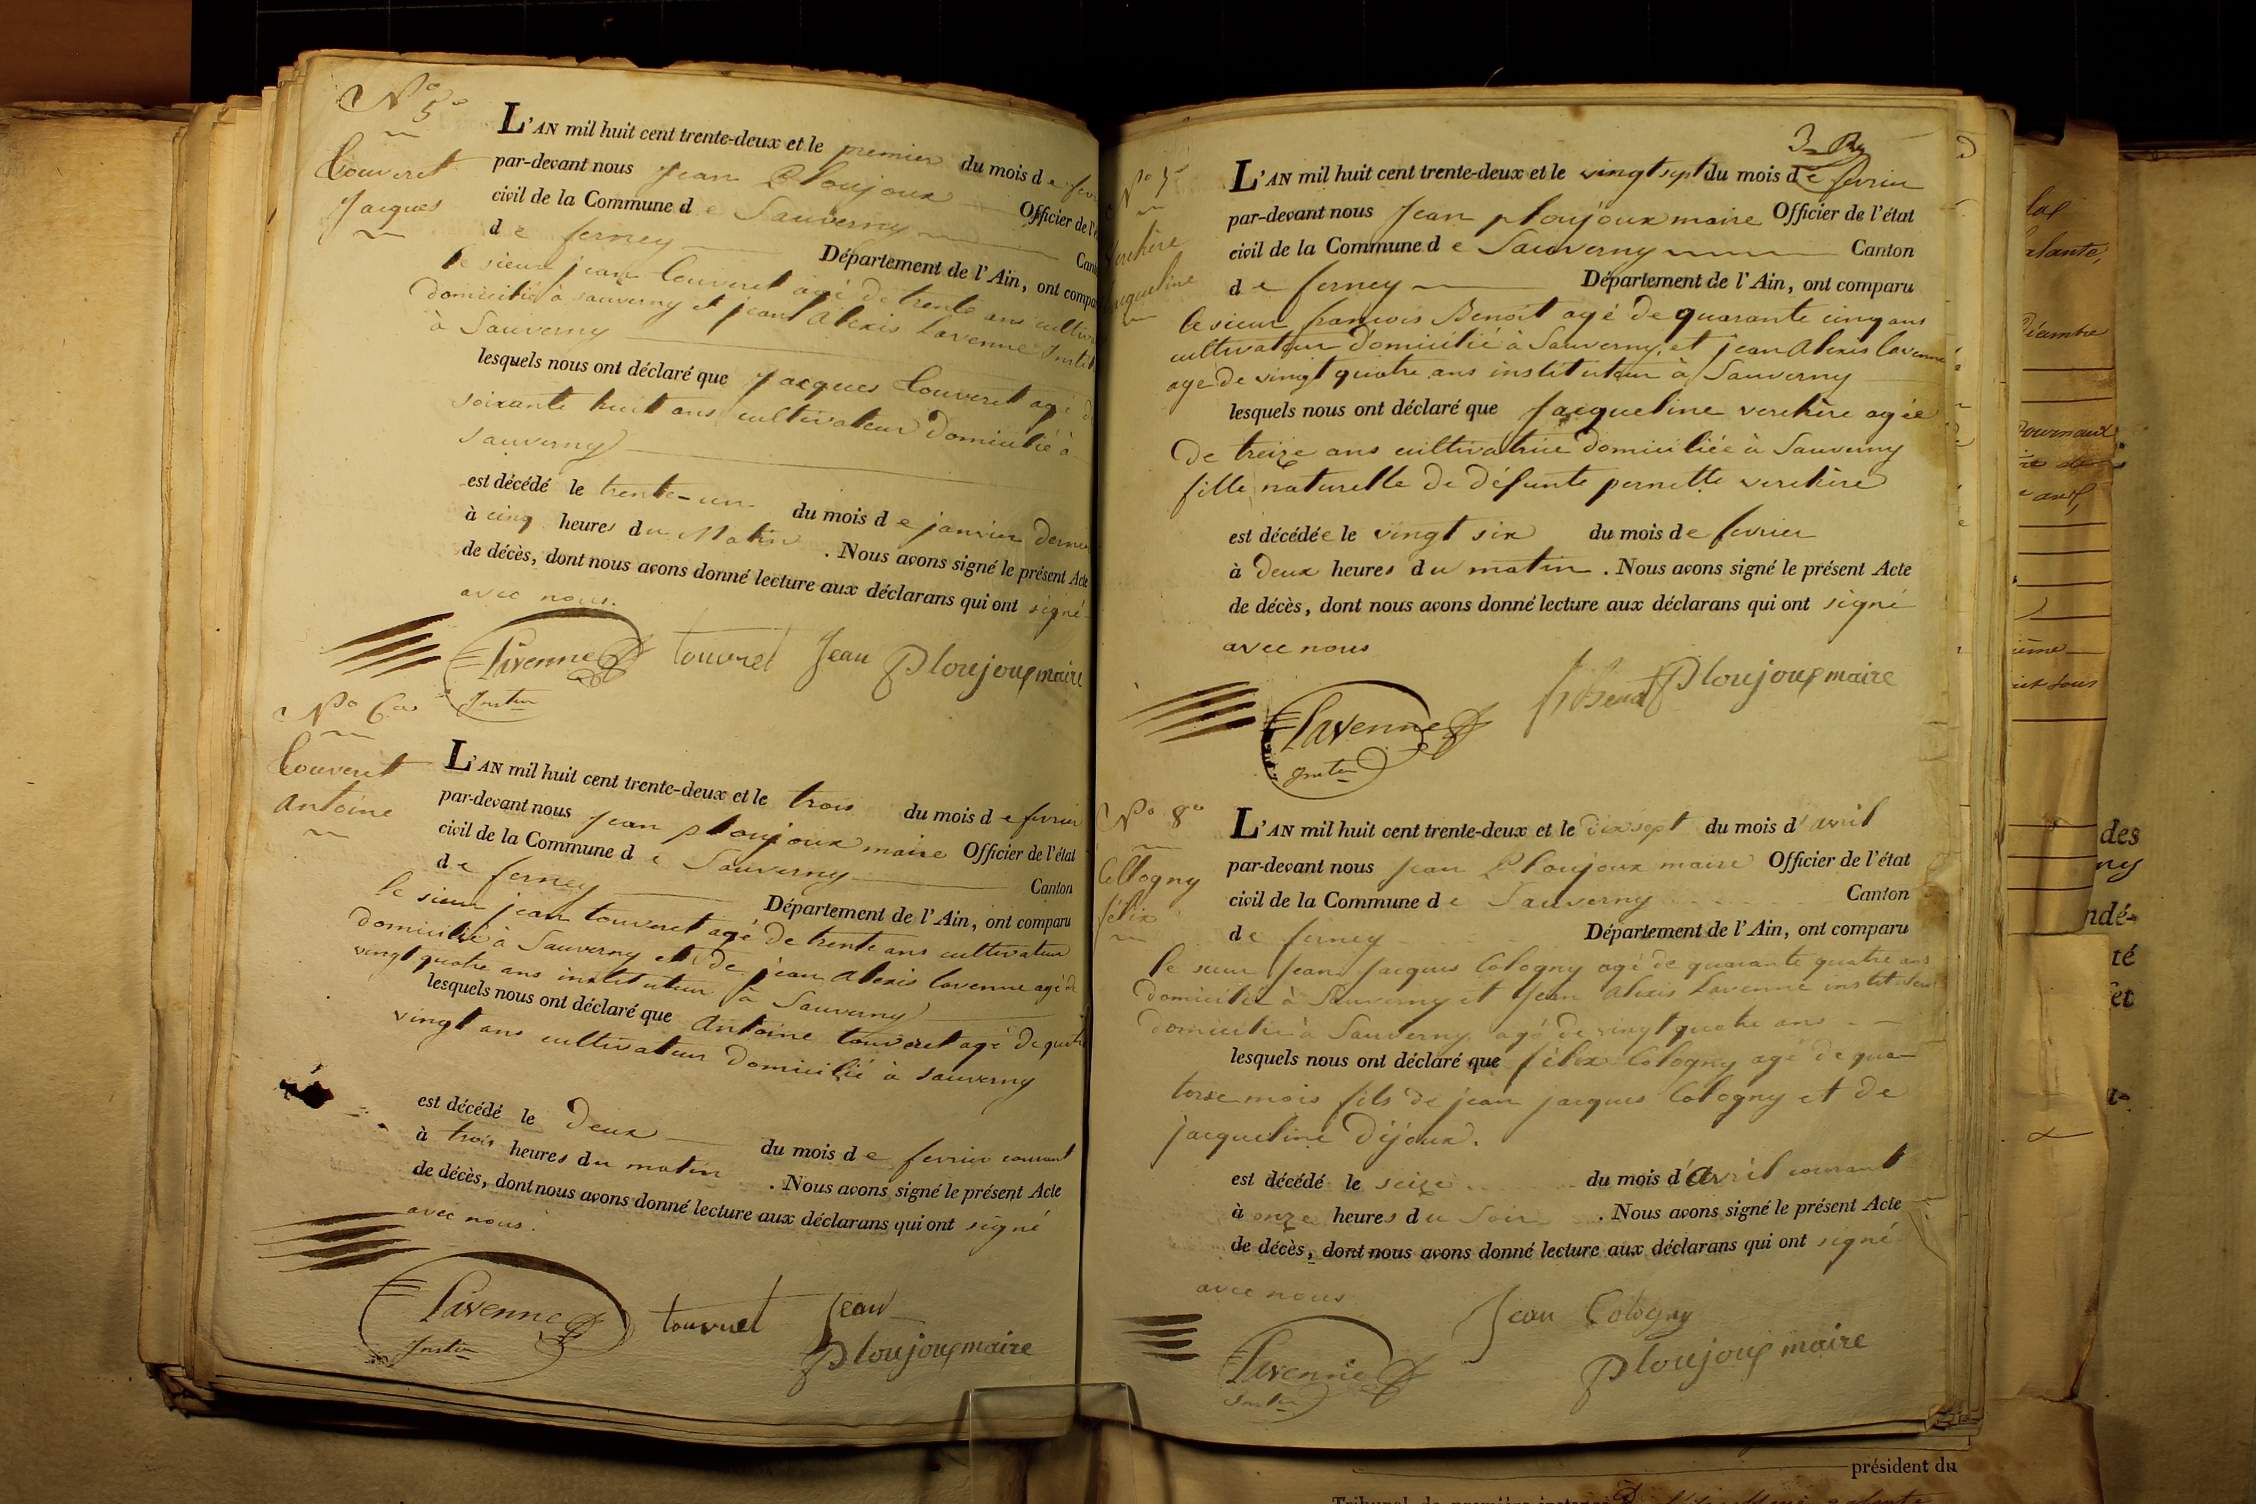 No 5o
Touveret
Jacques
L'AN mil huit cent trente-deux et le premier du mois de
par-devant nous Jean Ploujoux Officier de
civil de la Commune de Sauverny
de ferney Département de l'Ain, ont
le sieur jean Touveret agé de trente ans
domicilié à sauverny et jean Alexis Lavenne
à Sauverny
lesquels nous ont déclaré que Jacques Touveret agé
soixante huit ans cultivateur domicilié à
Sauverny
est décédé le trente-un du mois de janvier
à cinq heures du Matin . Nous avons signé le présent Acte
de décès, dont nous avons donné lecture aux déclarans qui ont signé
avec nous.
Lavenne touvret Jean Ploujoux maire
Insteur
No 6o
Touveret
Antoine
L'AN mil huit cent trente-deux et le trois du mois de fevrier
par-devant nous Jean ploujoux maire Officier de l'état
civil de la Commune de Sauverny Canton
de ferney Département de l'Ain, ont comparu
le sieur jean touveret agé de trente ans cultivateur
domicilié à Sauverny et de jean Alexis lavenne agé de
vingt quatre ans instituteur à Sauverny
lesquels nous ont déclaré que Antoine touveret agé de quatre
vingt ans cultivateur domicilié à sauverny
est décédé le Deux du mois de fevrier courant
à trois heures du matin . Nous avons signé le présent Acte
de décès, dont nous avons donné lecture aux déclarans qui ont signé
avec nous.
Lavenne touvret Jean
Insteur Ploujoux maire
3
No 7
Verchère
Jacqueline
L'AN mil huit cent trente-deux et le vingt sept du mois de fevrier
par-devant nous Jean ploujoux maire Officier de l'état
civil de la Commune de Sauverny Canton
de ferney Département de l'Ain, ont comparu
le sieur francois Benoit agé de quarante cinq ans
cultivateur domicilié à Sauverny, et jean Alexis lavenne
agé de vingt quatre ans instituteur à Sauverny
lesquels nous ont déclaré que Jacqueline verchère agée
de treize ans cultivatrice domiciliée à Sauverny
fille naturelle de défunte pernette verchère
est décédée le vingt six du mois de fevrier
à deux heures du matin . Nous avons signé le présent Acte
de décès, dont nous avons donné lecture aux déclarans qui ont signé
avec nous
Ploujoux maire
Lavenne
Insteur
No 8o
Cologny
félix
L'AN mil huit cent trente-deux et le dix sept du mois d'avril
par-devant nous Jean Ploujoux maire Officier de l'état
civil de la Commune de Sauverny Canton
de ferney Département de l'Ain, ont comparu
le sieur Jean Jacques Cologny agé de quarante quatre ans
domicilié à Sauverny et Jean Alexis Lavenne instituteur
domicilié à Sauverny agé de vingt quatre ans
lesquels nous ont déclaré que félix Cologny agé de qua-
torse mois fils de jean jacques Cologny et de
jacqueline Déjoux.
est décédé le seize du mois d'avril courant
à onze heures du soir . Nous avons signé le présent Acte
de décès, dont nous avons donné lecture aux déclarans qui ont signé
avec nous
Jean Cologny
Lavenne Ploujoux maire
Insteur
des
président du